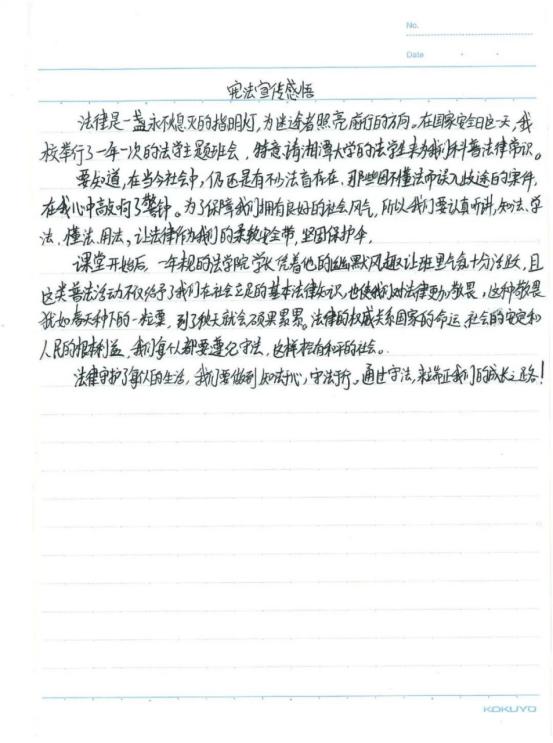 No.
Date
宪法宣传感悟
法律是一盏永不熄灭的指明灯,为迷途者照亮前行的方向。在国家安全日这一天,我
校举行了一年一次的法学主题班会,特意请湘潭大学的法学生来为我们科普法律常识。
要知道,在当今社会中,仍还是有不少法盲存在,那些因不懂法而误入歧途的案件,
在我心中敲响了警钟。为了保障我们拥有良好的社会风气,所以我们要认真听讲,知法、学
法、懂法、用法,让法律作为我们的柔软安全带,坚固保护伞。
课堂开始后,一年规的法学院学长凭着他的幽默风趣让班里气氛十分活跃,且
这类普法活动不仅给予了我们在社会立足的基本法律知识,也使我们对法律更加敬畏,这种敬畏
犹如春天种下的一粒粟,到了秋天就会硕果累累。法律的权威关系国家的命运,社会的安定和
人民的根本利益,我们每个人都要遵纪守法,这样才有和平的社会。
法律守护了每个人的生活,我们要做到知法于心,守法于行。通过守法,来端正我们的成长之路!
KOKUYO